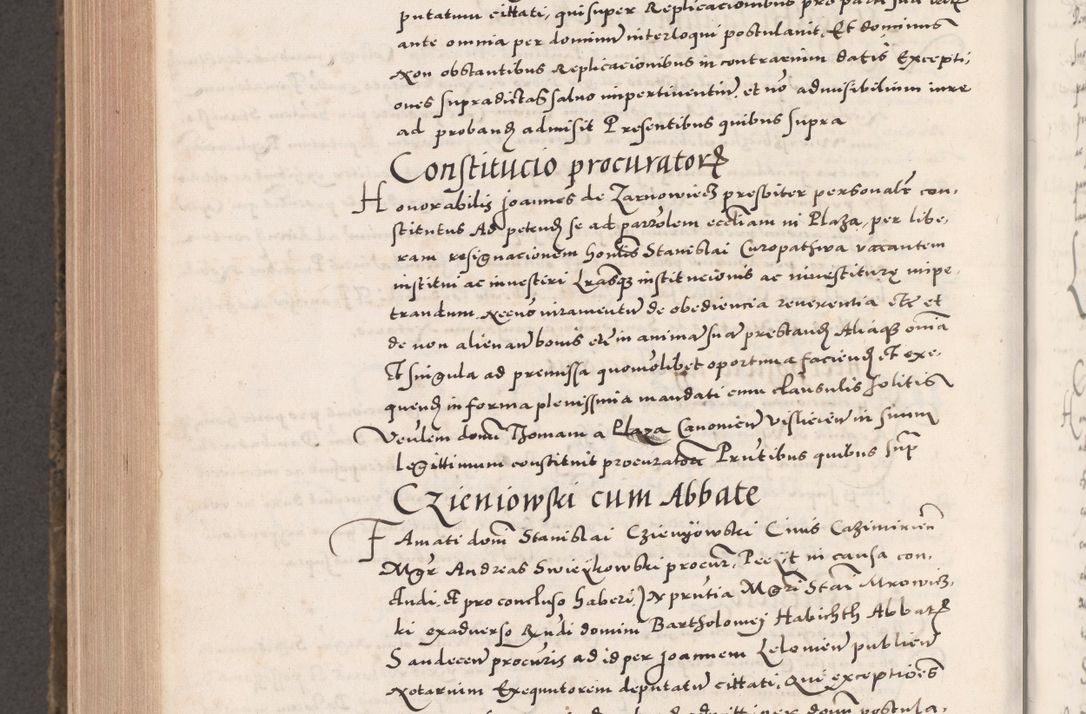 putatum cittati, qui super Replicacionibus pro parte sua
ante omnia per dominum interloqui postulavit, Et dominus
Non obstantibus Replicacionibus in contrarium datis Excepti,
ones supradictas salvo impertinentiu. et no admisibilium iure
ad proband admisit Presentibus quibus supra
Constitucio procurator
Honorabilis Joannes de Zarnowiecz presbiter personalr con-
stitutus Ad petend se ad parrolem eccliam in Plaza, per libe-
ram resignacionem honlis Stanislai Curopathwa vacantem
institui ac investiri Lrasq institucionis ac investiturę impe-
trandum. Necno iuramentu de obediencia reverentia etc et
de non alienan bonis etc in anima sua prestand Aliaq omia
Et singula ad premissa quomolibet oportuna faciend et exe-
quend in forma plenissima mandati cum clausulis solitis
Veulem domi Thomam a Plaza Canonicu Visliciem in suum
legittimum constituit procurator Pntibus quibus sup
Czieniowski cum Abbate
Famati domi Stanislai Czieniiowski Civis Cazimirien
Mgr Andreas Swieykowski procur, Peeyt in causa con-
cludi, et pro concluso haberi, In prntia Mgri Stai Mrowicz-
ki ex adverso Rndi domini Bartholomej Habichth Abbat
Sandecen procuris ad id per Joannem Leloniem publicu
Notarium Exequutorem deputatu cittati, Qui exceptiones